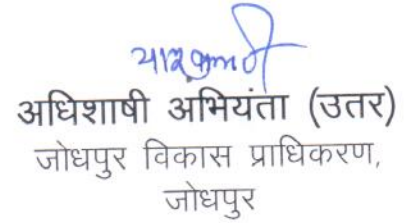 अधिशाषी अभियंता (उतर)
जोधपुर विकास प्राधिकरण,
जोधपुर